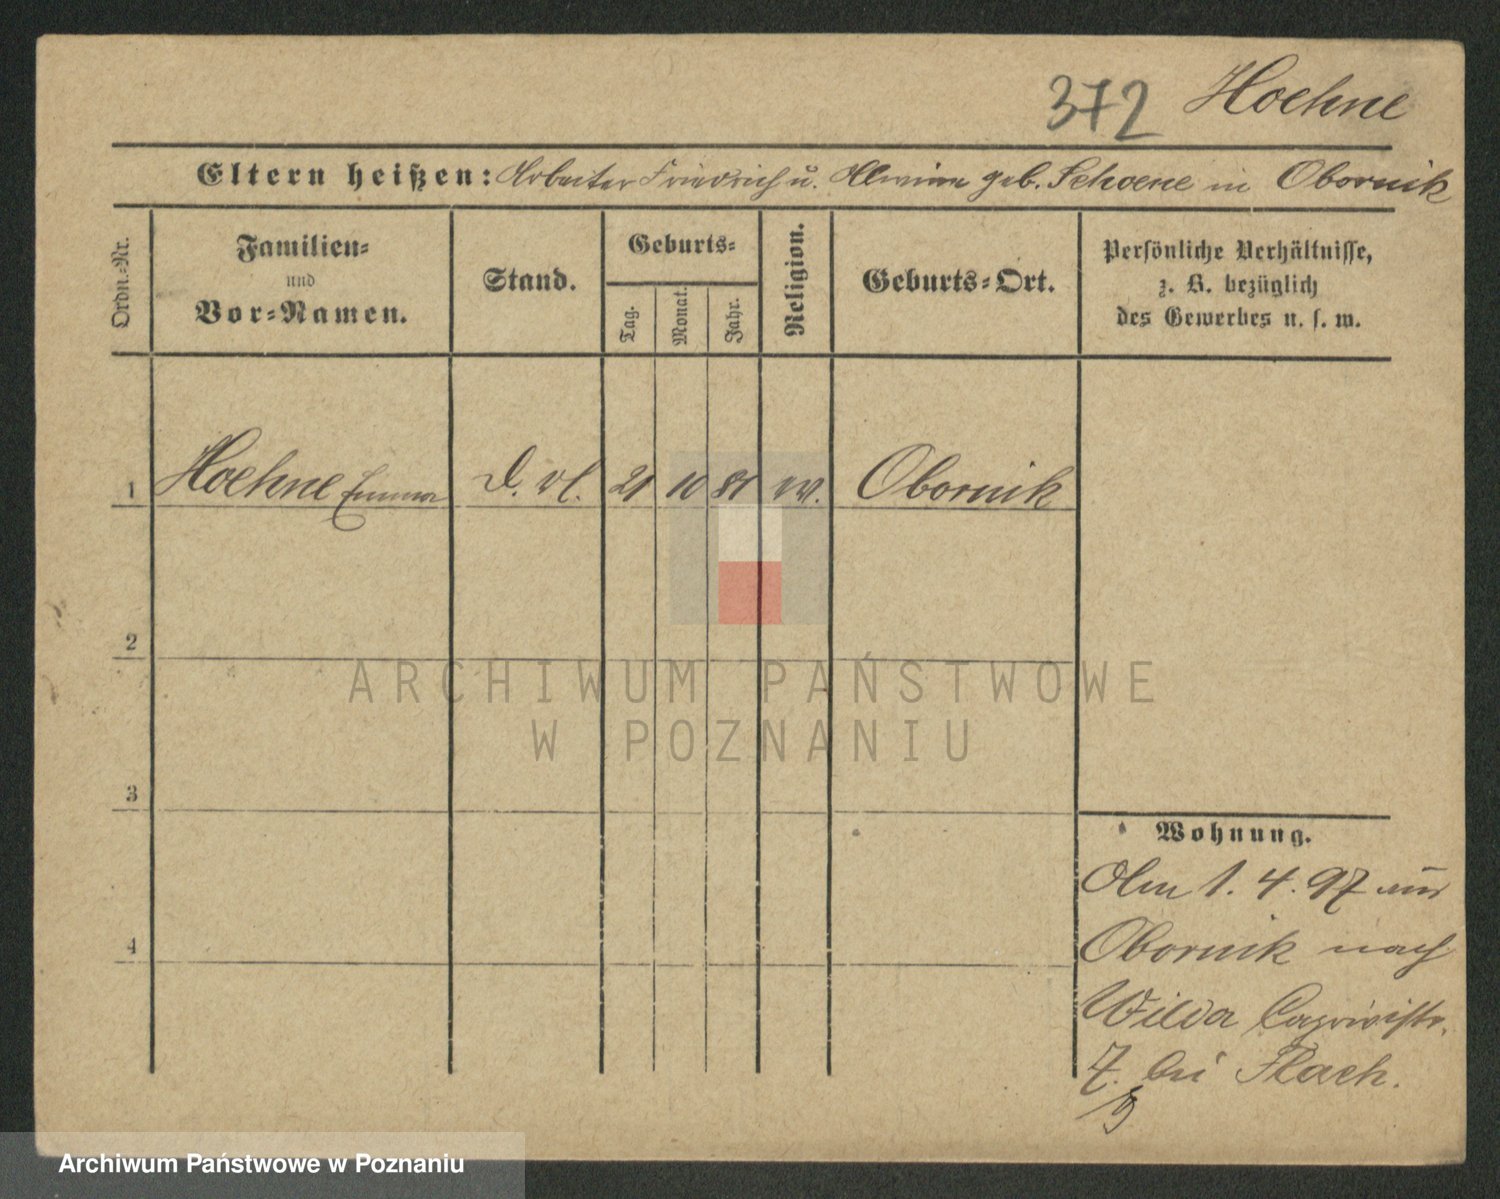 372 Hoehne
Eltern heißen: Arbeiter Friedrich u. Alwine geb. Schoene in Obornik
Ordn.-Nr.
Familien-
und
Vor-Namen.
Stand.
Geburts-
Tag.
Monat.
Jahr.
Religion.
Geburts-Ort.
Persönliche Verhältnisse,
z. B. bezüglich
des Gewerbes u. s. w.
1 Hoehne Emma D. vl. 21 10 81 ev. Obornik
2
ARCHIWUM PAŃSTWOWE
W POZNANIU
3
Wohnung.
Am 1. 4. 97 aus
4
Obornik nach
Wilda Caprivistr.
7. bei Flach.
Archiwum Państwowe w Poznaniu